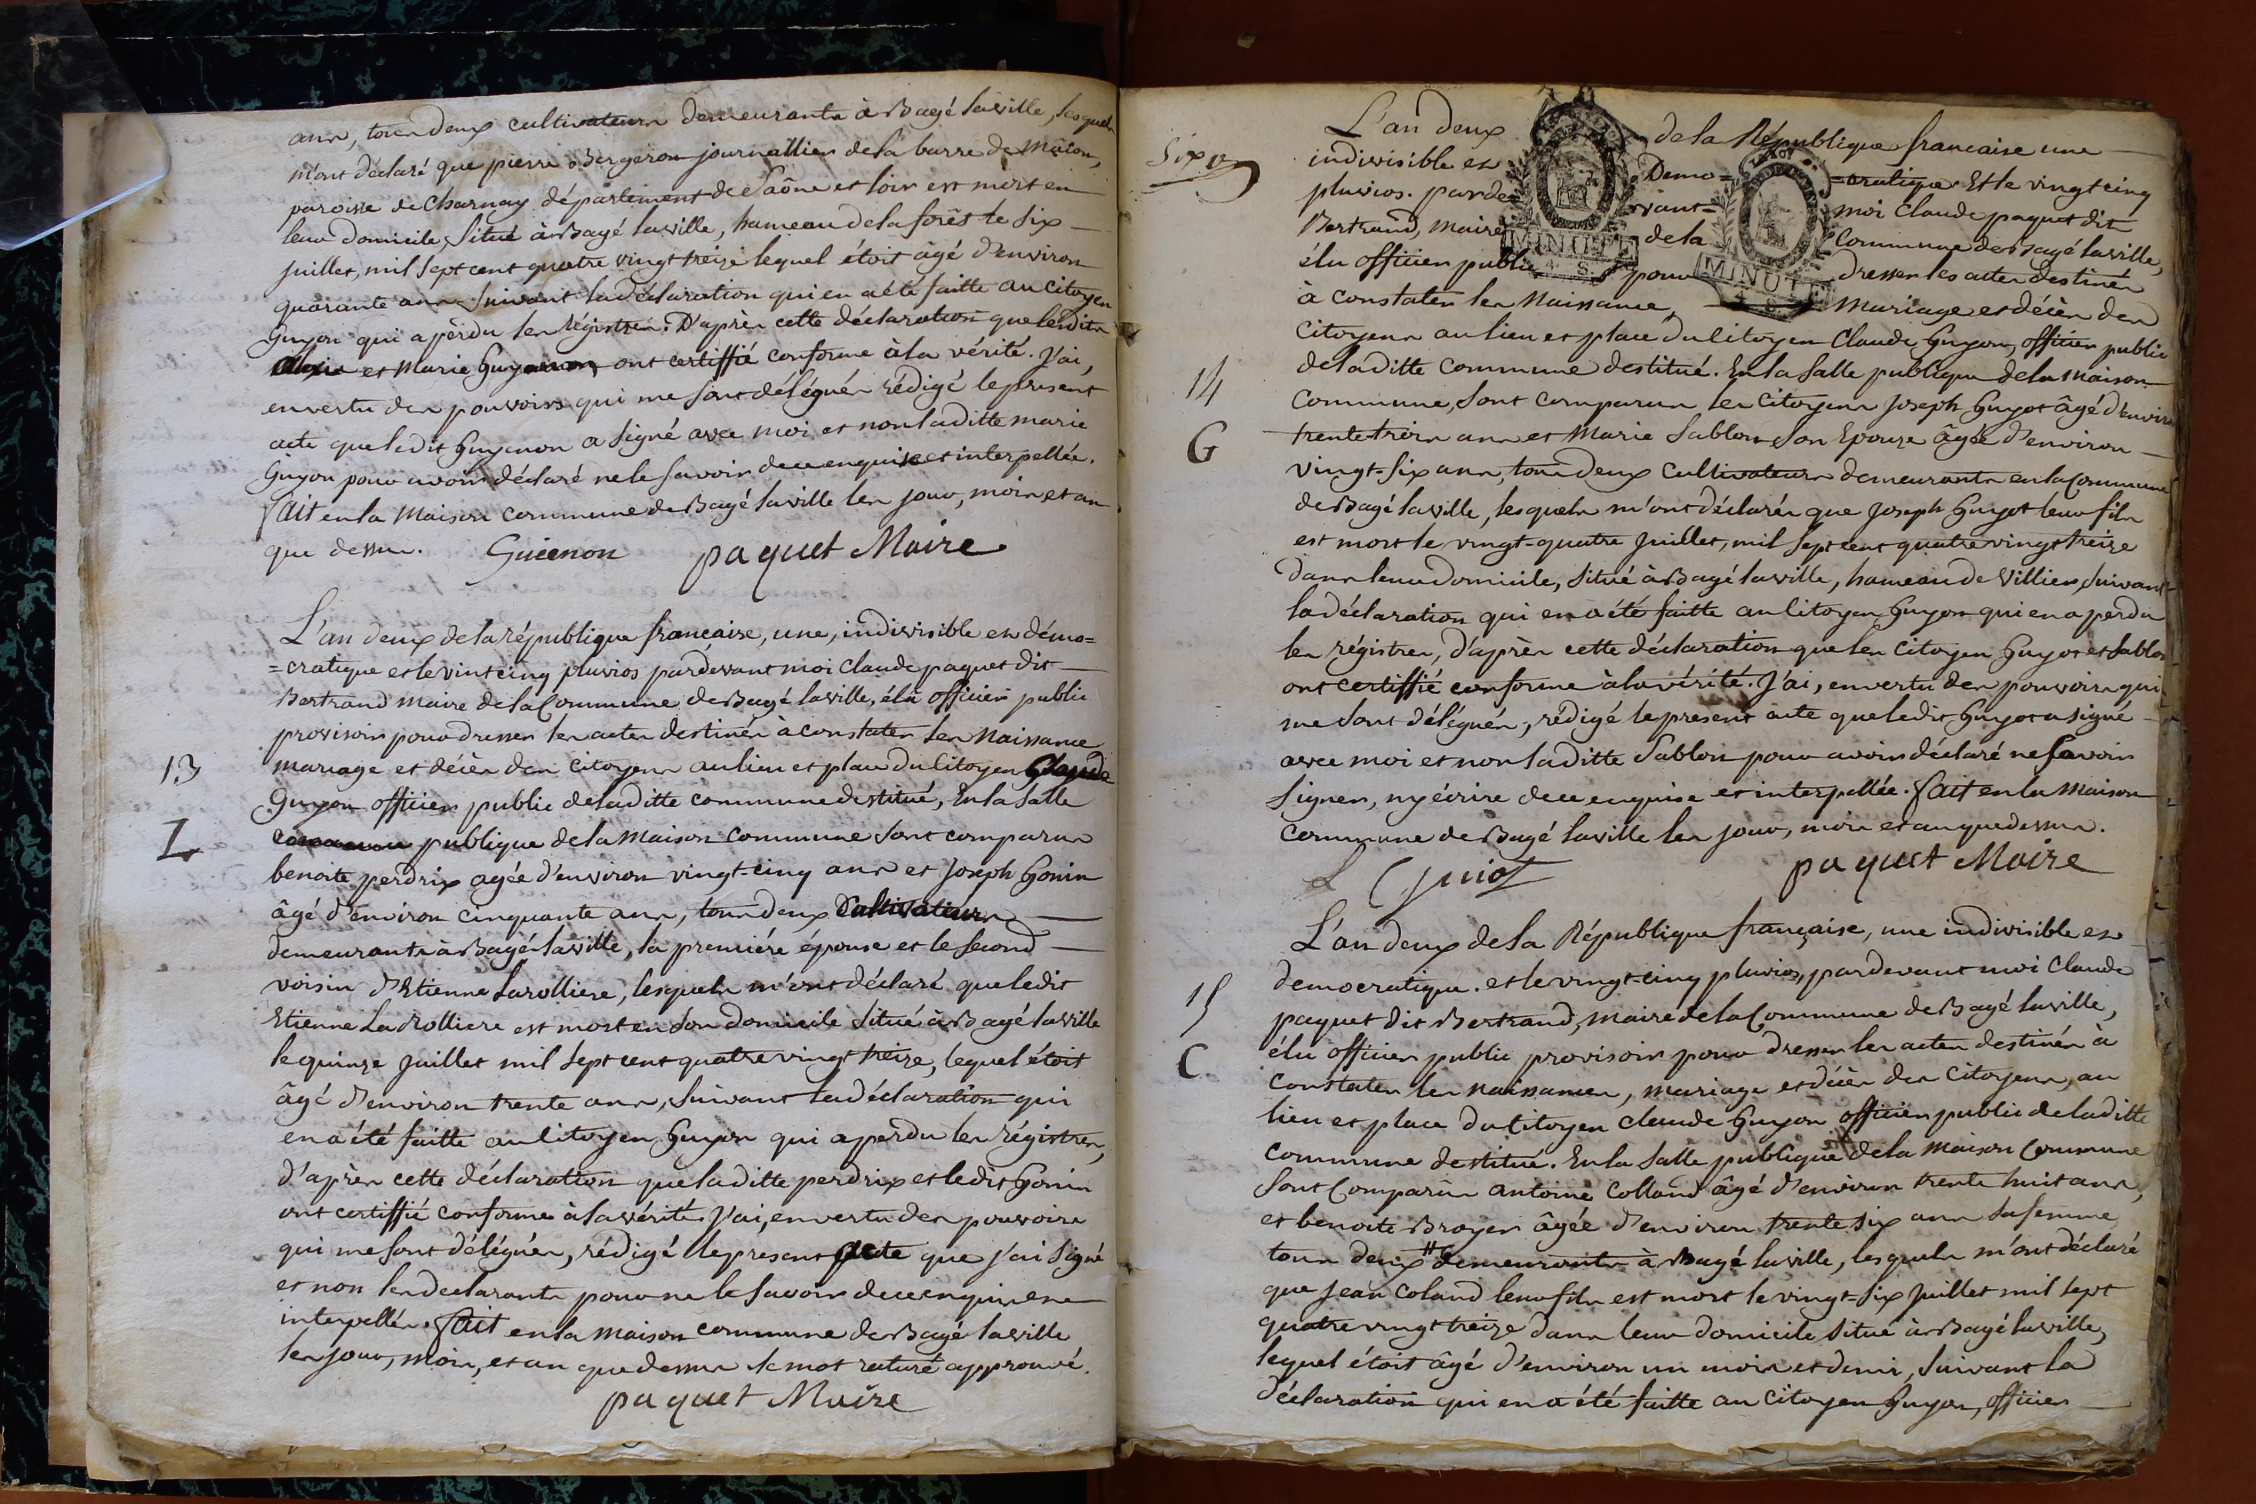 ans, tous deux cultivateurs demeurants à Bagé laville, lesquels
m'ont déclaré que pierre Bergeron journallier de la barre de Mâcon,
paroisse de Charnay département de Saône et loir est mort en
leur domicile situé à Bagé laville, hameau de la forêt le six
juillet, mil sept cent quatre vingt treize lequel étoit âgé d'environ
quarante ans suivant la déclaration qui en a été faitte au citoyen
Guyon qui a pérdu les régistres. D'après cette déclaration que lesdits
et Marie Guyon ont certiffié conforme à la vérité. J'ai,
en vertu des pouvoirs qui me sont délégués rédigé le present
acte que ledit Guyenon a signé avec moi et non laditte marie
Guyon pour avoir déclaré ne le savoir de ce enquise et interpellée.
fait en la Maison commune de Bagé laville les jour, mois et an
que dessus. Guienon paquet Maire
L'an deux de la république française, une, indivisible et démo=
=cratique et le vint cinq pluvios pardevant moi Claude paquet dit
Bertrand maire de la Commune de Bagé laville, élu officier public
provisoir pour dresser les actes destinés à constater les Naissance
13
mariage et décès des citoyens au lieu et place du Citoyen Claude
Guyon officier public de laditte commune destitué, En la Salle
L
publique de la Maison commune sont comparus
benoite perdrix agée d'environ vingt-cinq ans et Joseph Gonin
âgé d'environ cinquante ans, tous deux Cultivateurs
demeurants à Bagé laville, la premiére épouse et le second
voisin d'Etienne Larolliere, lesquels m'ont déclaré que ledit
Etienne La Rolliere est mort en son domicile situé à Bagé laville
le quinze juillet mil sept cent quatre vingt treize, lequel étoit
âgé d'environ trente ans, suivant la déclaration qui
en a été faitte au Citoyen Guyon qui a perdu les régistres,
d'après cette déclaration que laditte perdrix et ledit Gonin
ont certiffié conforme à la vérité. J'ai, en vertu des pouvoirs
qui me sont délégués, rédigé le present acte que j'ai signé
et non les declarants pour ne le savoir de ce enquis et
interpellés. fait en la Maison commune de Bagé laville
les jour, mois, et an que dessus le mot raturé approuvé.
paquet Maire
Six
L'an deux de la République francaise une
indivisible et Démo= =cratique Et le vingt cinq
pluvios. parde vant= moi Claude paquet dit
Bertrand, Maire de la Commune de Bagé laville,
MINUTE
élu officier public pour dresser les actes destinés
MINUTE
à constater les Naissance, Mariage et décès des
citoyens au lieu et place du Citoyen Claude Guyon, officier public
de laditte commune destitué. En la salle publique de la Maison
14
Commune, sont comparus les Citoyens Joseph Guyot âgé d'environ
G
trente trois ans et Marie Sablon son Epouze âgée d'environ
vingt-six ans, tous deux Cultivateurs demeurants en la Commune
de Bagé laville, lesquels m'ont déclarés que Joseph Guyot leur fils
est mort le vingt-quatre juillet, mil sept cent quatre vingt treize
dans leur domicile, situé à Bagé laville, hameau de Villier, suivant
la déclaration qui en a été faitte au Citoyen Guyon qui en a perdu
les régistres, d'après cette déclaration que les citoyen Guyot et Sablon
ont certiffié conforme à la vérité. J'ai, en vertu des pouvoirs qui
me sont délégués, rédigé le present acte que ledit Guyot a signé
avec moi et non laditte Sablon pour avoir déclaré ne savoir
signer, ny écrire de ce enquise et interpellée. fait en la Maison
Commune de Bagé laville les jour, mois et an que dessus.
Guiot paquet Maire
L'an deux de la République française, une indivisible et
democratique. et le vingt-cinq pluvios, pardevant moi Claude
15
paquet dit Bertrand, Maire de la Commune de Bagé laville,
C
élu officier public provisoir pour dresser les actes destinés à
constater les naissances, mariage et décès des Citoyens, au
lieu et place du Citoyen claude Guyon officier public de laditte
commune destitué. En la salle publique de la Maison Commune
sont Comparus antoine Colland âgé d'environ trente huit ans,
et benoite Broyer âgée d'environ trente six ans sa femme
tous deux demeurants à Bagé laville, lesquels m'ont déclaré
que Jean Coland leur fils est mort le vingt-six juillet mil sept
quatre vingt treize dans leur domicile situé à Bagé laville,
lequel étoit âgé d'environ un mois et demi, suivant la
déclaration qui en a été faitte au Citoyen Guyon, officier